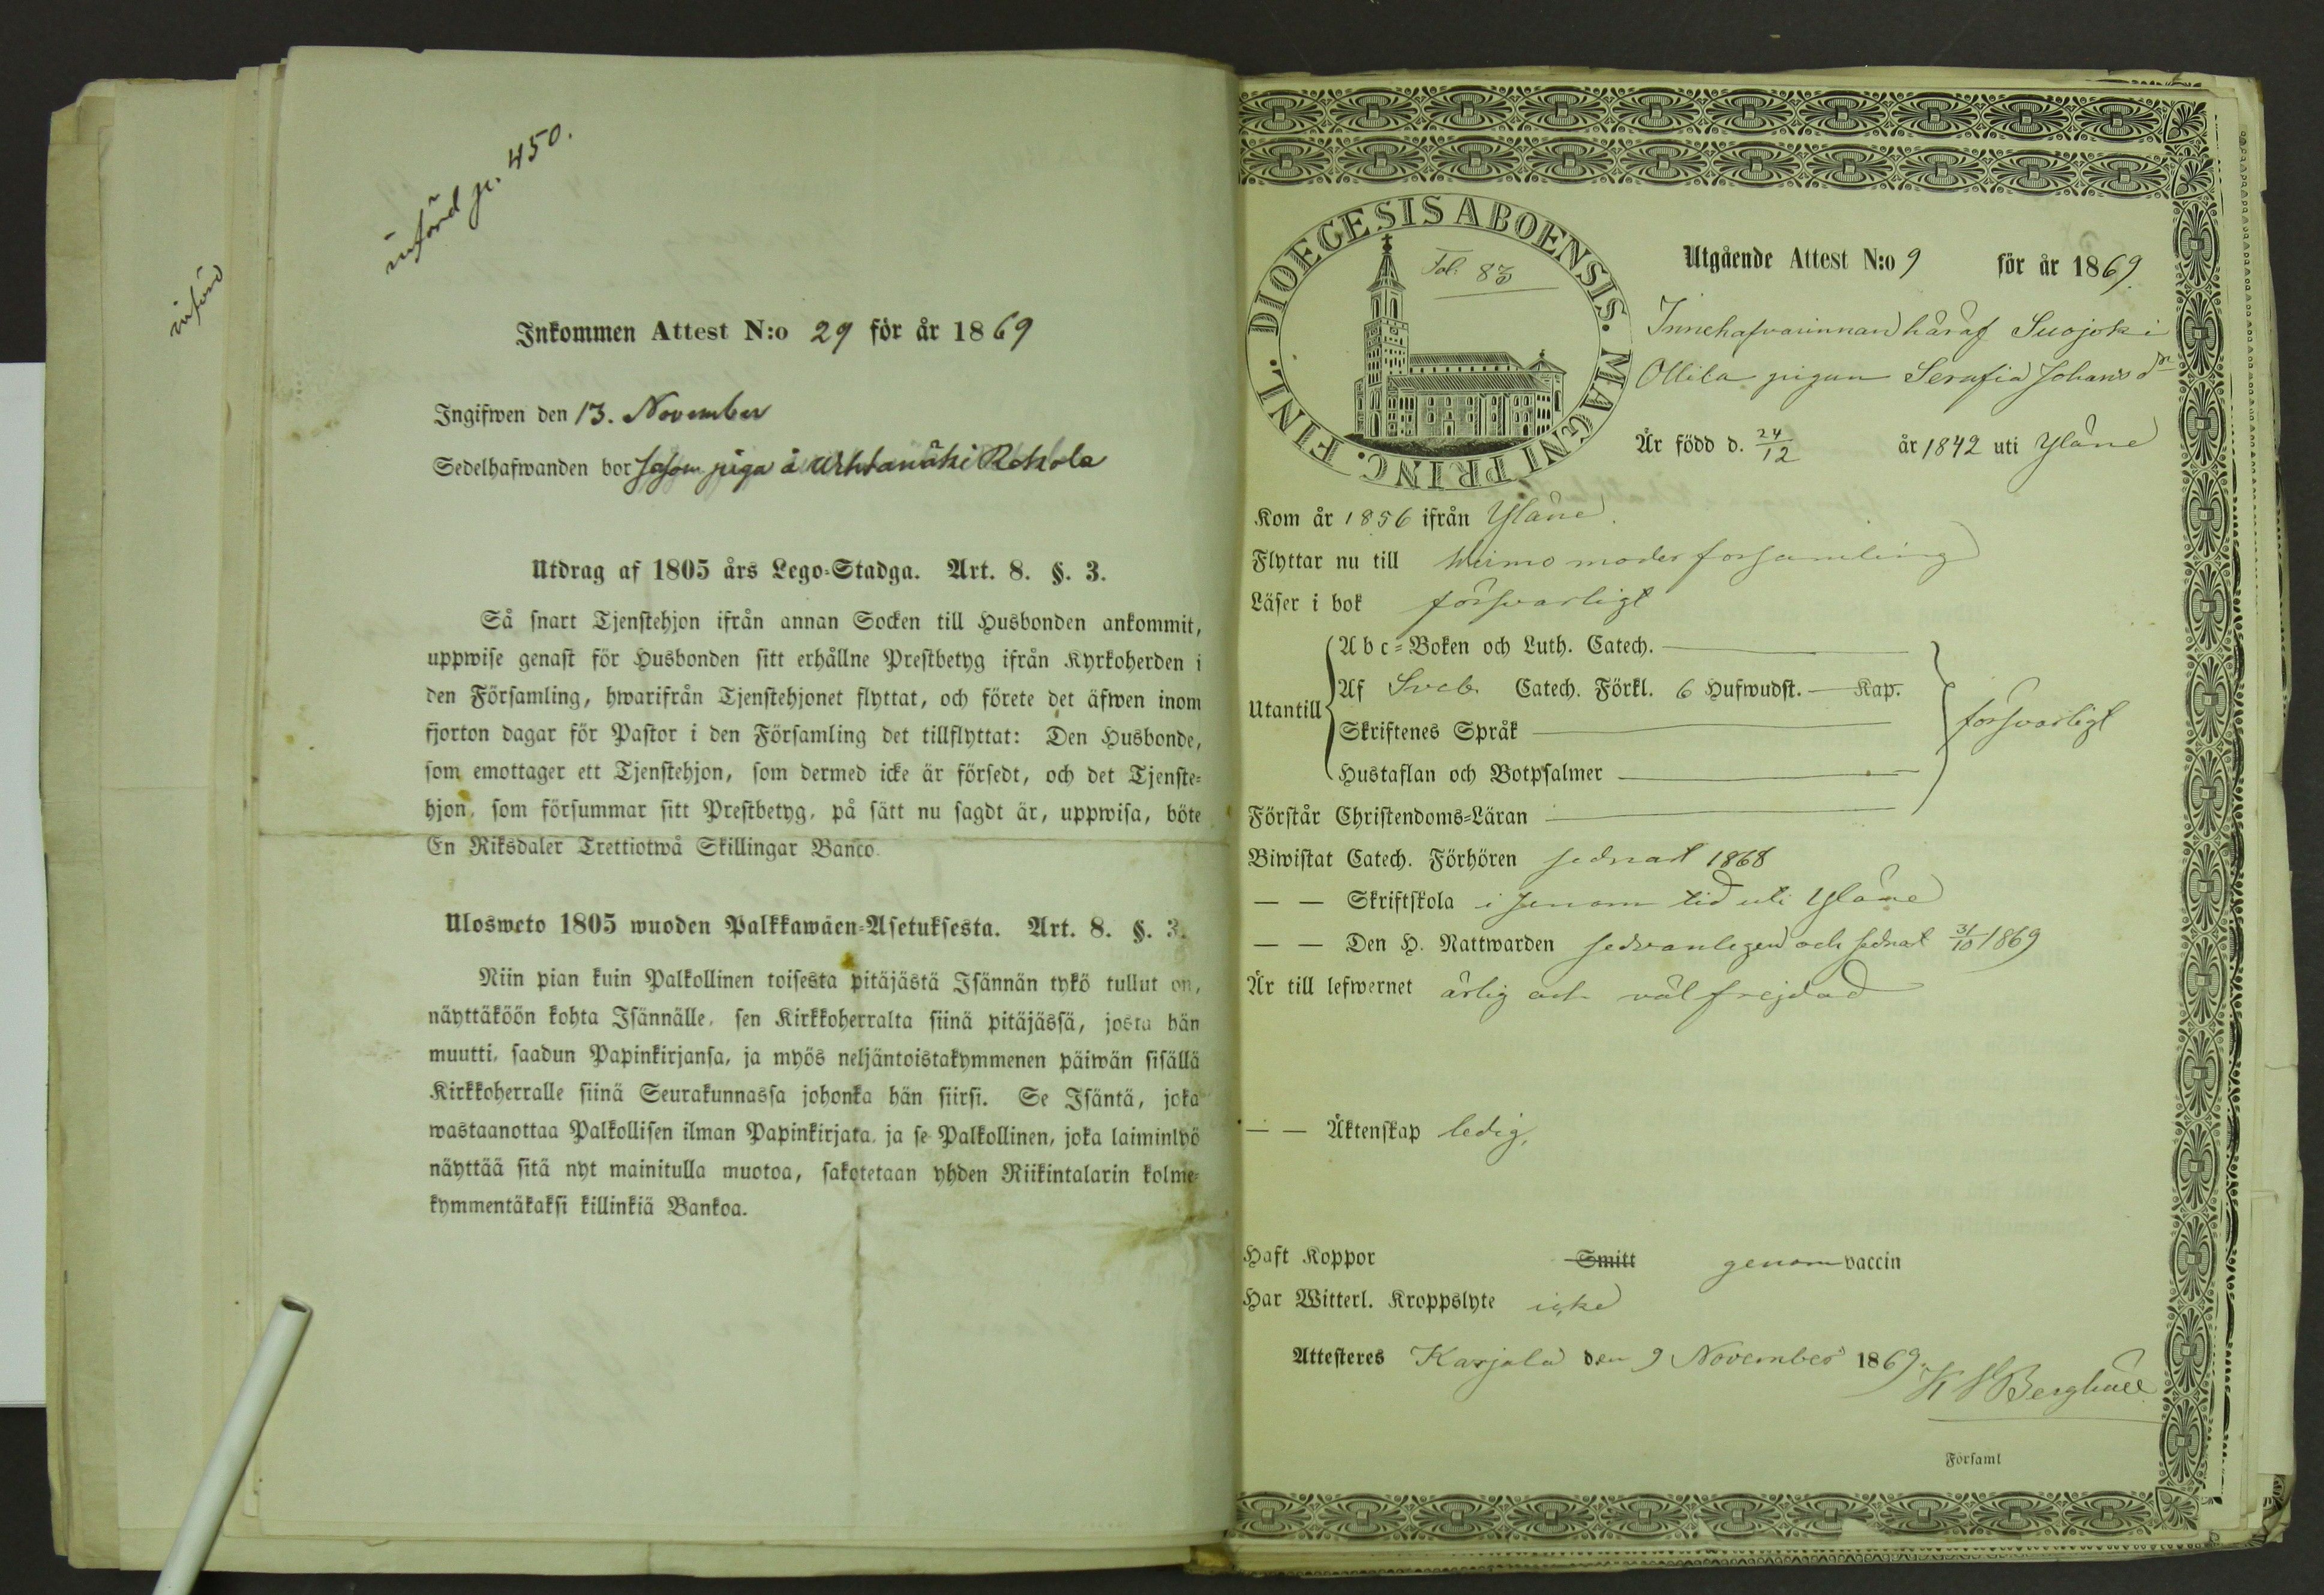 införd
införd p. 450.
Inkommen Attest N:o 29 för år 1869
Ingifwen den 13. November
Sedelhafwanden bor såsom piga å Uhtamäki Rekola
Utdrag af 1805 års Lego-Stadga. Art. 8. §. 3.
Så snart Tjenstehjon ifrån annan Socken till Husbonden ankommit,
uppwise genast för Husbonden sitt erhållne Prestbetyg ifrån Kyrkoherden i
den Församling, hwarifrån Tjenstehjonet flyttat, och förete det äfwen inom
fjorton dagar för Pastor i den Församling det tillflyttat: Den Husbonde,
som emottager ett Tjenstehjon, som dermed icke är försedt, och det Tjenste-
hjon, som försummar sitt Prestbetyg, på sätt nu sagdt är, uppwisa, böte
En Riksdaler Trettiotwå Skillingar Banco.
Ulosweto 1805 wuoden Palkkawäen-Asetuksesta. Art. 8. §. 3.
Niin pian kuin Palkollinen toisesta pitäjästä Isännän tykö tullut on,
näyttäköön kohta Isännälle, sen Kirkkoherralta siinä pitäjässä, josta hän
muutti, saadun Papinkirjansa, ja myös neljäntoistakymmenen päiwän sisällä
Kirkkoherralle siinä Seurakunnassa johonka hän siirsi. Se Isäntä, joka
wastaanottaa Palkollisen ilman Papinkirjata, ja se Palkollinen, joka laiminlyö
näyttää sitä nyt mainitulla muotoa, sakotetaan yhden Riikintalarin kolme-
kymmentäkaksi killinkiä Bankoa.
DIOECESIS ABOENSIS. MAGNI PRINC. FINL.
Fol. 83
Utgående Attest N:o 9 för år 1869.
Innehafvarinnan häraf Suojoki
Ollila pigan Serafia Johansdr
Är född d. 24/12 år 1842 uti Yläne
Kom år 1856 ifrån Yläne.
Flyttar nu till Wirmo moderförsamling
Läser i bok försvarligt
Utantill
Abc-Boken och Luth. Catech.
Af Sveb. Catech. Förkl. 6 Hufwudst. — Kap.
Skriftenes Språk
försvarligt
Hustaflan och Botpsalmer
Förstår Christendoms-Läran
Biwistat Catech. Förhören sednast 1868
— — Skriftskola i sinom tid uti Yläne
— — Den H. Nattwarden sedvanligen och sednast 31/10 1869
Är till lefwernet ärlig och väl frejdad
— — Äktenskap ledig,
Haft Koppor Smitt genom vaccin
Har Witterl. Kroppslyte icke
Attesteres Karjala den 9 November 1869.
Berghäll
Församl